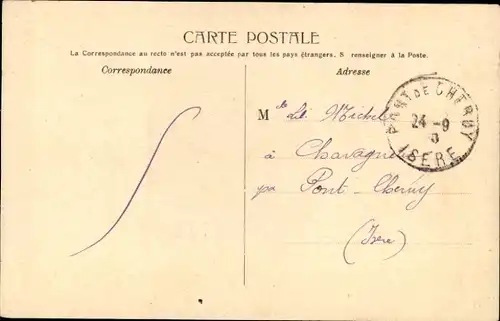 CARTE POSTALE
La Correspondance au recto n'est pas acceptée par tous les pays étrangers. S renseigner à la Poste.
Correspondance
Adresse
M
Michel
à Chavagne
Pont-Cheruy
(Isère)
PONT DE CHÉRUY
24 -9
ISÈRE